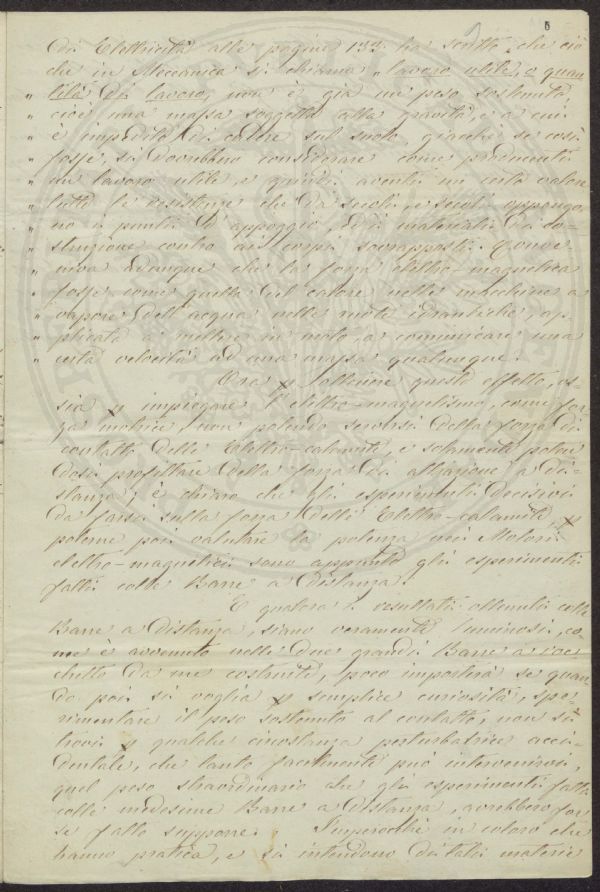 5
di Elettricità alle pagine 132 ha scritto, che ciò
che in Meccanica si chiama „ lavoro utile, o quan
„ tità di lavoro, non è già un peso sostenuto,
„ cioè una massa soggetta alla gravità, e a cui
„ è impedito di cadere sul suolo, giacchè se così
„ fosse, si dovrebbero considerare come producenti
„ un lavoro utile, e quindi aventi un certo valore
„ tutte le resistenze che da secoli, e secoli oppongo
„ no i punti d'appoggio, ed i materiali da co-
„ struzione contro dei corpi sovrapposti. Conve
„ niva adunque che la forza elettro-magnetica
„ fosse come quella del calore nelle macchine a
„ vapore, dell'acqua nelle ruote idrauliche, ap
„ plicata a mettere in moto, a comunicare una
„ certa velocità ad una massa qualunque.
Ora p ottenere questo effetto, os-
sia p impiegare l'elettro-magnetismo, come for
za motrice, non potendo servirsi della forza di
contatto delle Elettro-calamite, e solamente poten
dosi profittare della forza di attrazione a di-
stanza, è chiaro che gli esperimenti decisivi
da farsi sulla forza delle Elettro-calamite, p
poterne poi valutare la potenza nei Motori
elettro-magnetici sono appunto gli esperimenti
fatti colle Barre a distanza.
E qualora i resultati ottenuti colle
Barre a distanza, siano veramente luminosi, co
me è avvenuto nelle due grandi Barre a roc
chetto da me costruite, poco importerà se quan
do poi si voglia p semplice curiosità, spe-
rimentare il peso sostenuto al contatto, non si
trovi p qualche circostanza perturbatrice acci-
dentale, che tanto facilmente può intervenirvi,
quel peso straordinario che gli esperimenti fatti
colle medesime Barre a distanza, avrebbero for
se fatto supporre. Imperocchè in coloro che
hanno pratica, e si intendono di tali materie